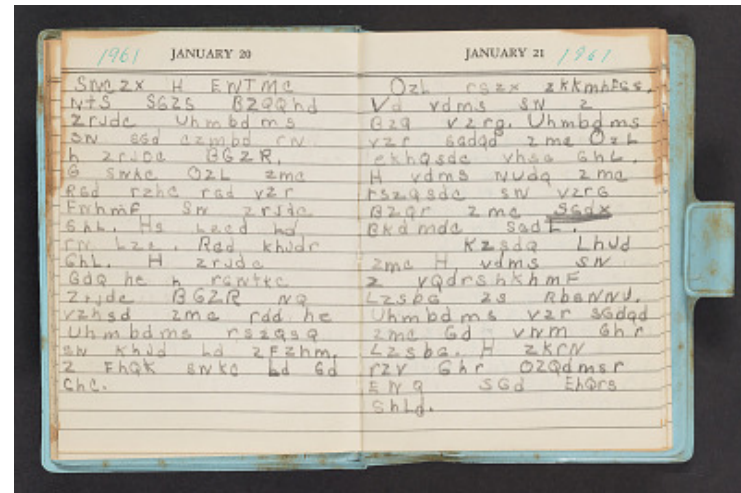 1961 JANUARY 20
SNCZX H ENTMC
NtS SGZS BZQQhd
zrJdc Uhmbdms
SN SGd czmbd rN
h zrJdc BGZR.
G SNkc OZL zmc
RGd rzhc rGd vzr
FNhmF SN zrJdc
GhL. Hs Lzcd Ld
rN Lzc. RGd khJdr
GhL. H zrJdc
GdQ he h rGNtkc
ZrJdc BGZR NQ
vzhsd zmc rdd he
Uhmbdms rszQsQ
SN khJd Ld zFzhm.
z FhQk SNkc Ld Gd
ChC.
JANUARY 21 1961
OZL rszx zkkmhFGs.
Vd vdms SN z
BZQ vzrG. Uhmbdms
vzr GdQd zmc OZL
ekhQsdc vhsG GhL.
H vdms NUdQ zmc
rszQsdc SN vzrG
BZQr zmc SGdX
Bkd mdc SGdL.
KzsdQ LhJd
zmc H vdms SN
z vQdrshkhmF
LzsbG zs RbGNNJ.
Uhmbdms vzr SGdQd
zmc Gd vNm Ghr
LzsbG. H zkrN
rzv Ghr OZQdmsr
ENQ SGd EhQrs
ShLd.